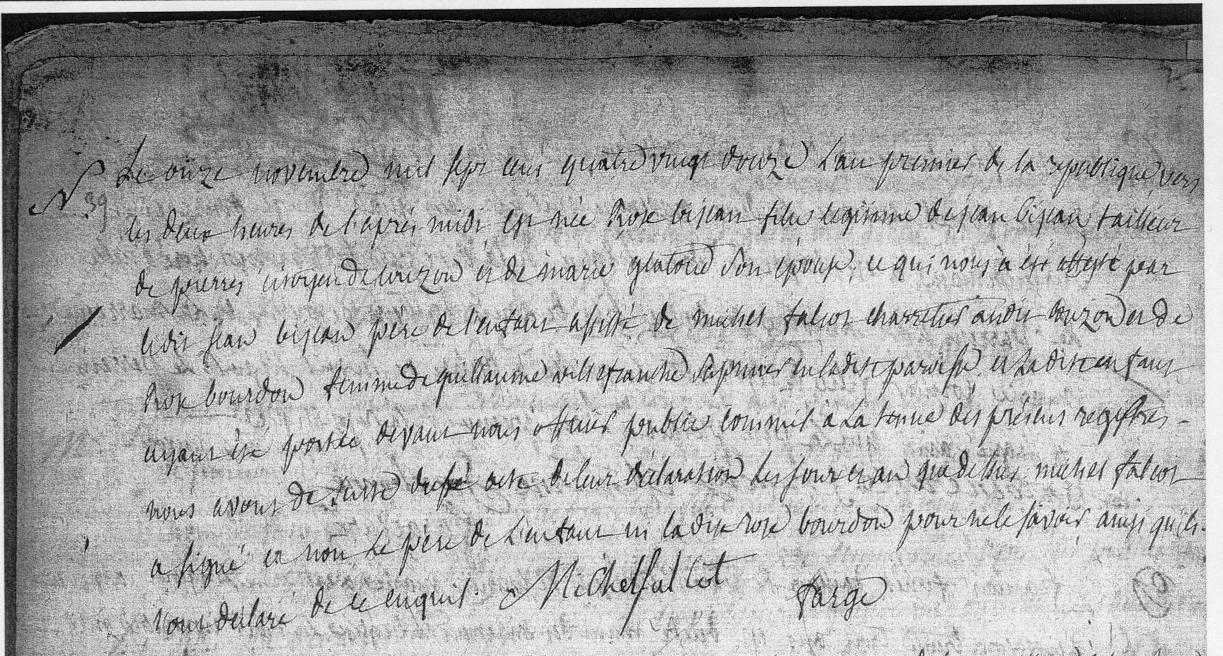 N 39
Le onze novembre mil sept cens quatre vingt douze L'an premier de la republique vers
les deux heures de l'après midi est née Rose bijean fille legitime de jean bijean tailleur
de pierres citoyen de couzon et de marie son épouse, ce qui nous à été attesté par
ledit jean bijean père de l'enfant assisté de michel falcot charretier audit couzon et de
Rose bourdon femme de guillaume villefranche en la dite paroisse et la dite enfant
ayant été portée devant nous officier public commis à La tenue des présens registres -
nous avons de suite dressé acte de leur déclaration Les jour et an que dessus michel falcot
a signé et non Le père de L'enfant ni la dite rose bourdon pour ne le savoir ainsi qu'ils
l'ont déclaré de ce enquis. Michel fallcot farge